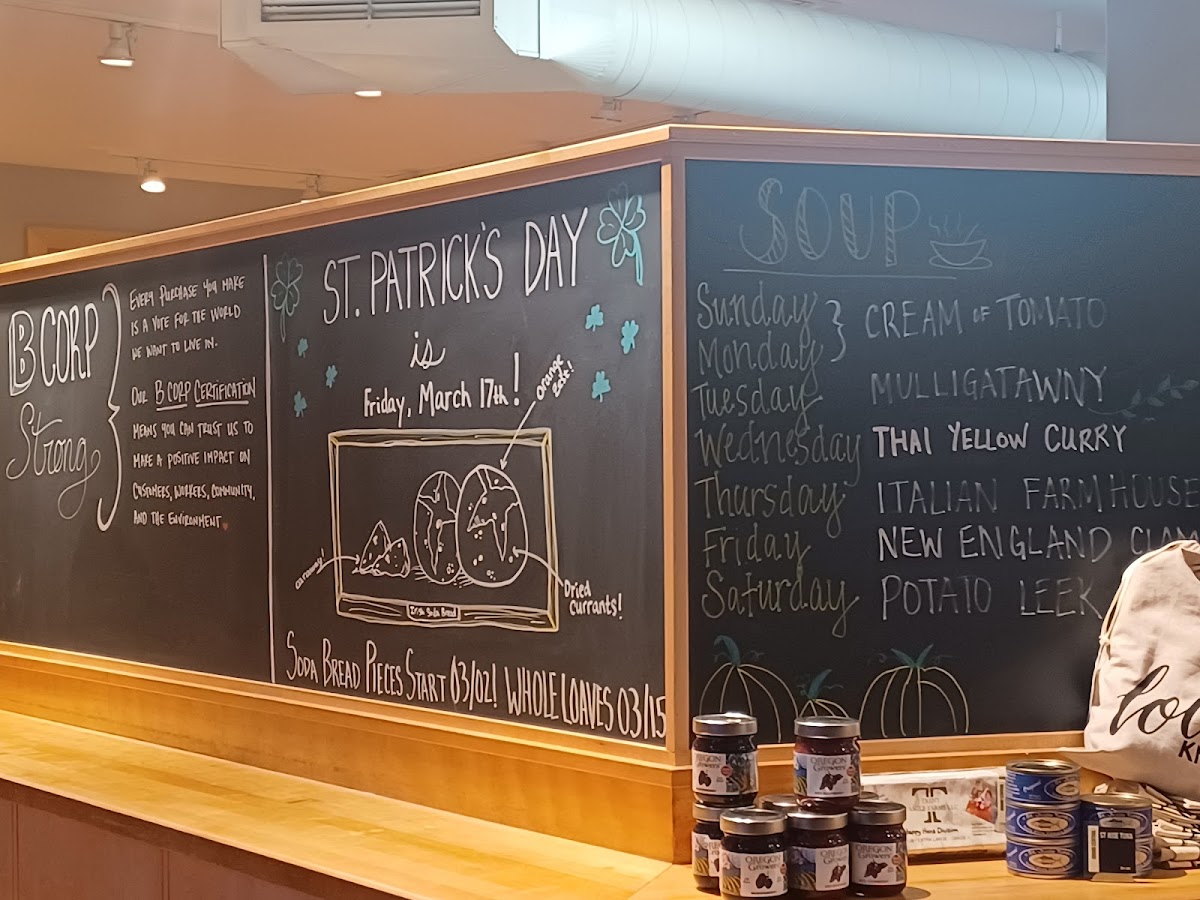 B CORP
Strong
EVERY PURCHASE YOU MAKE
IS A VOTE FOR THE WORLD
WE WANT TO LIVE IN.
OUR B CORP CERTIFICATION
MEANS YOU CAN TRUST US TO
MAKE A POSITIVE IMPACT ON
CUSTOMERS, WORKERS, COMMUNITY,
AND THE ENVIRONMENT
ST. PATRICK'S DAY
is
Friday, March 17th!
Orange
Zest!
Caraway!
Dried
Currants!
Irish Soda Bread
SODA BREAD PIECES START 03/02! WHOLE LOAVES 03/15
SOUP
Sunday
Monday } CREAM OF TOMATO
Tuesday MULLIGATAWNY
Wednesday THAI YELLOW CURRY
Thursday ITALIAN FARMHOUSE
Friday NEW ENGLAND
Saturday POTATO LEEK
OREGON
Growers
OREGON
Growers
OREGON
Growers